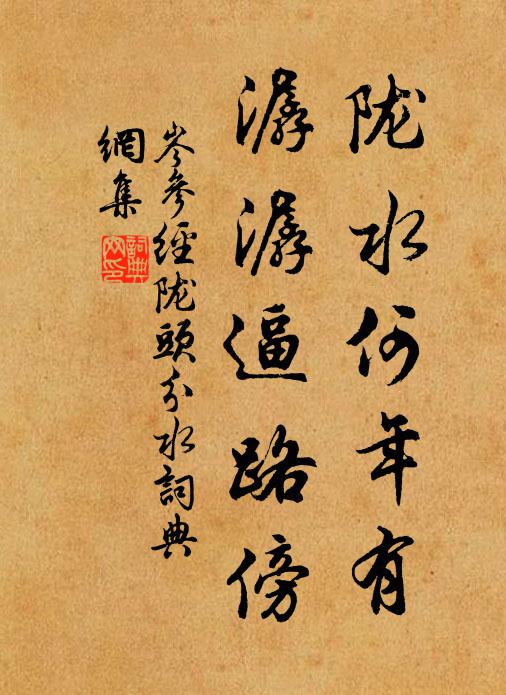 陇水何年有
潺潺逼路傍
岑參經陇頭分水詞典
網集
詞典
网印